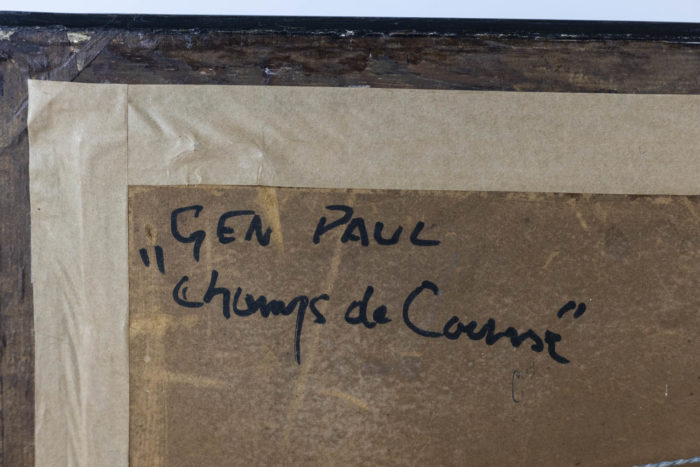 GEN PAUL
„Champs de Course”